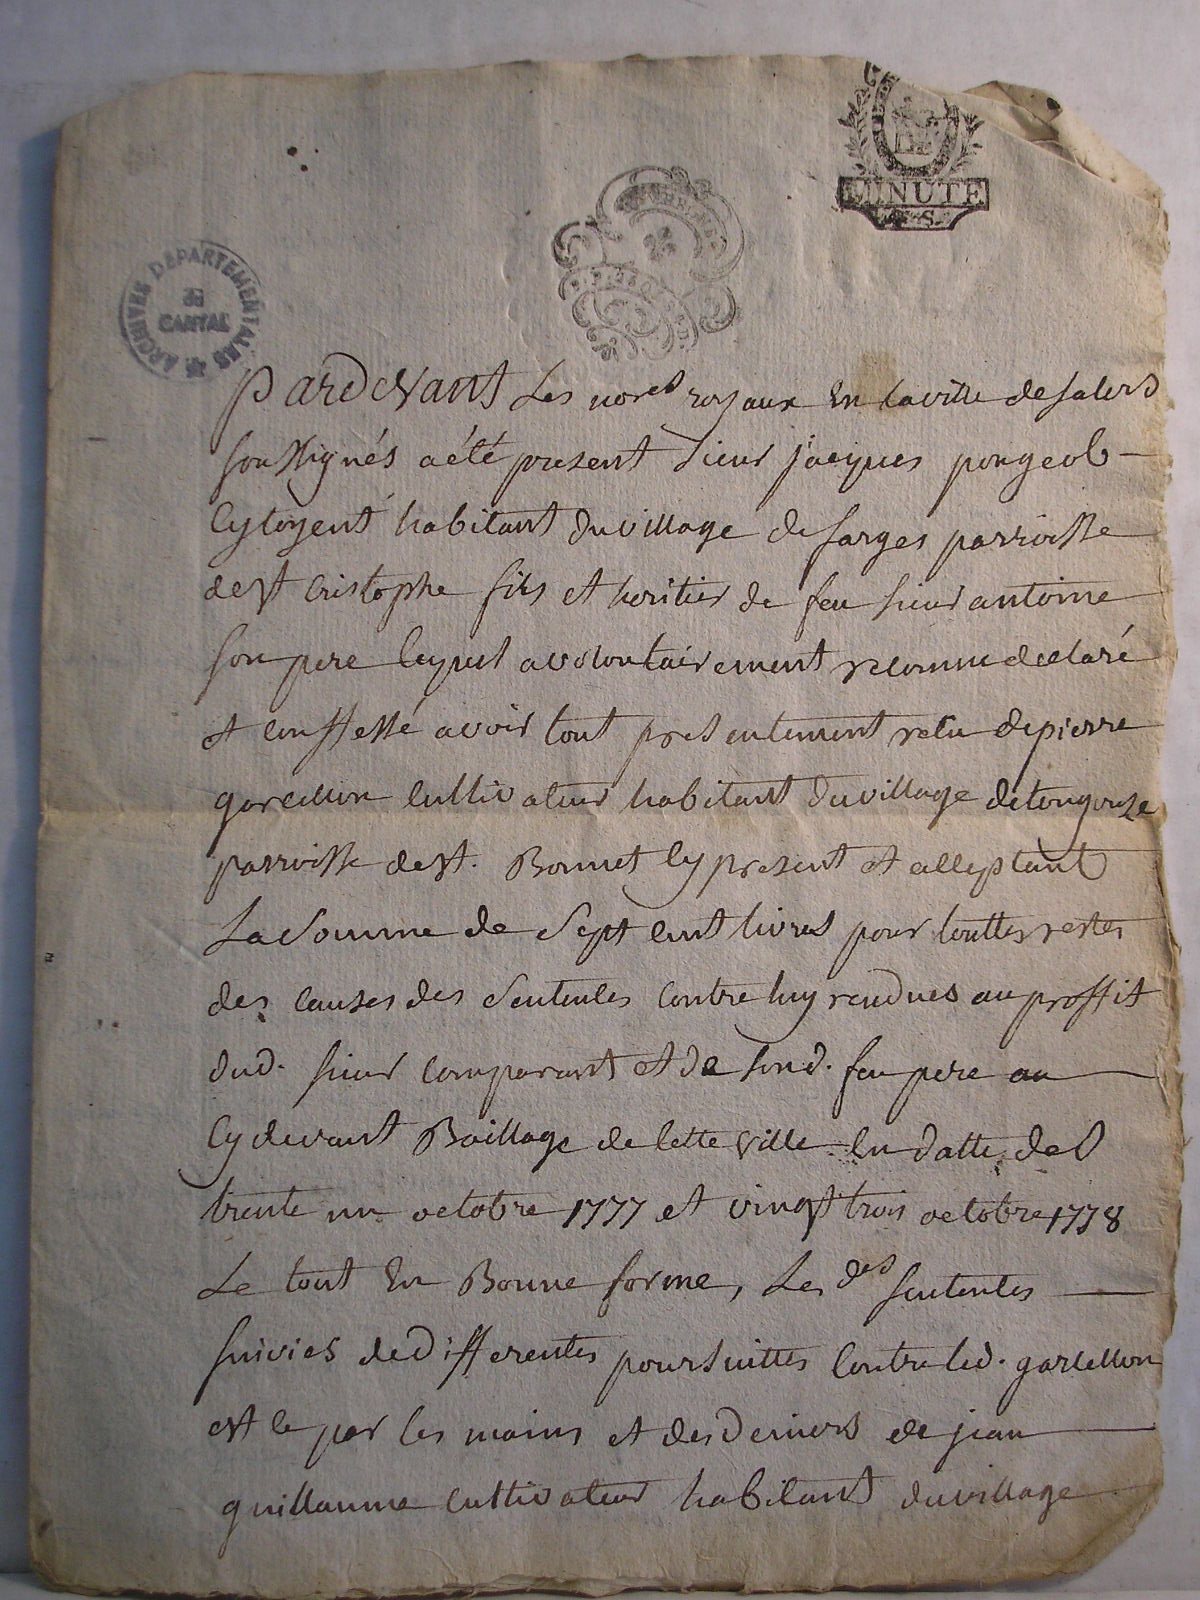 MINUTE
S.
ARCHIVES DEPARTEMENTALES
DU
CANTAL
Pardevant Les nores royaux En la ville de salers
soussignés a été present sieur jacques pougeol
cytoyent habitant du village de farges parroisse
de st cristophe fils et heritier de feu sieur antoine
son pere lequel a volontairement reconnu declaré
et conffessé avoir tout presentement recu de pierre
garcellon cultivateur habitant du village de tougouse
parroisse de st. Bonnet cy present et acceptant
La somme de sept cent livres pour touttes restes
des causes des sentences contre luy rendues au proffit
dud. sieur comparant et de sond. feu pere au
cy devant Baillage de cette ville en datte des
trente un octobre 1777 et vingt trois octobre 1778
Le tout En Bonne forme, Les des sentences
suivies de differentes poursuittes contre led. garcellon
est ce par les mains et des deniers de jean
guillaume cultivateur habitant du village